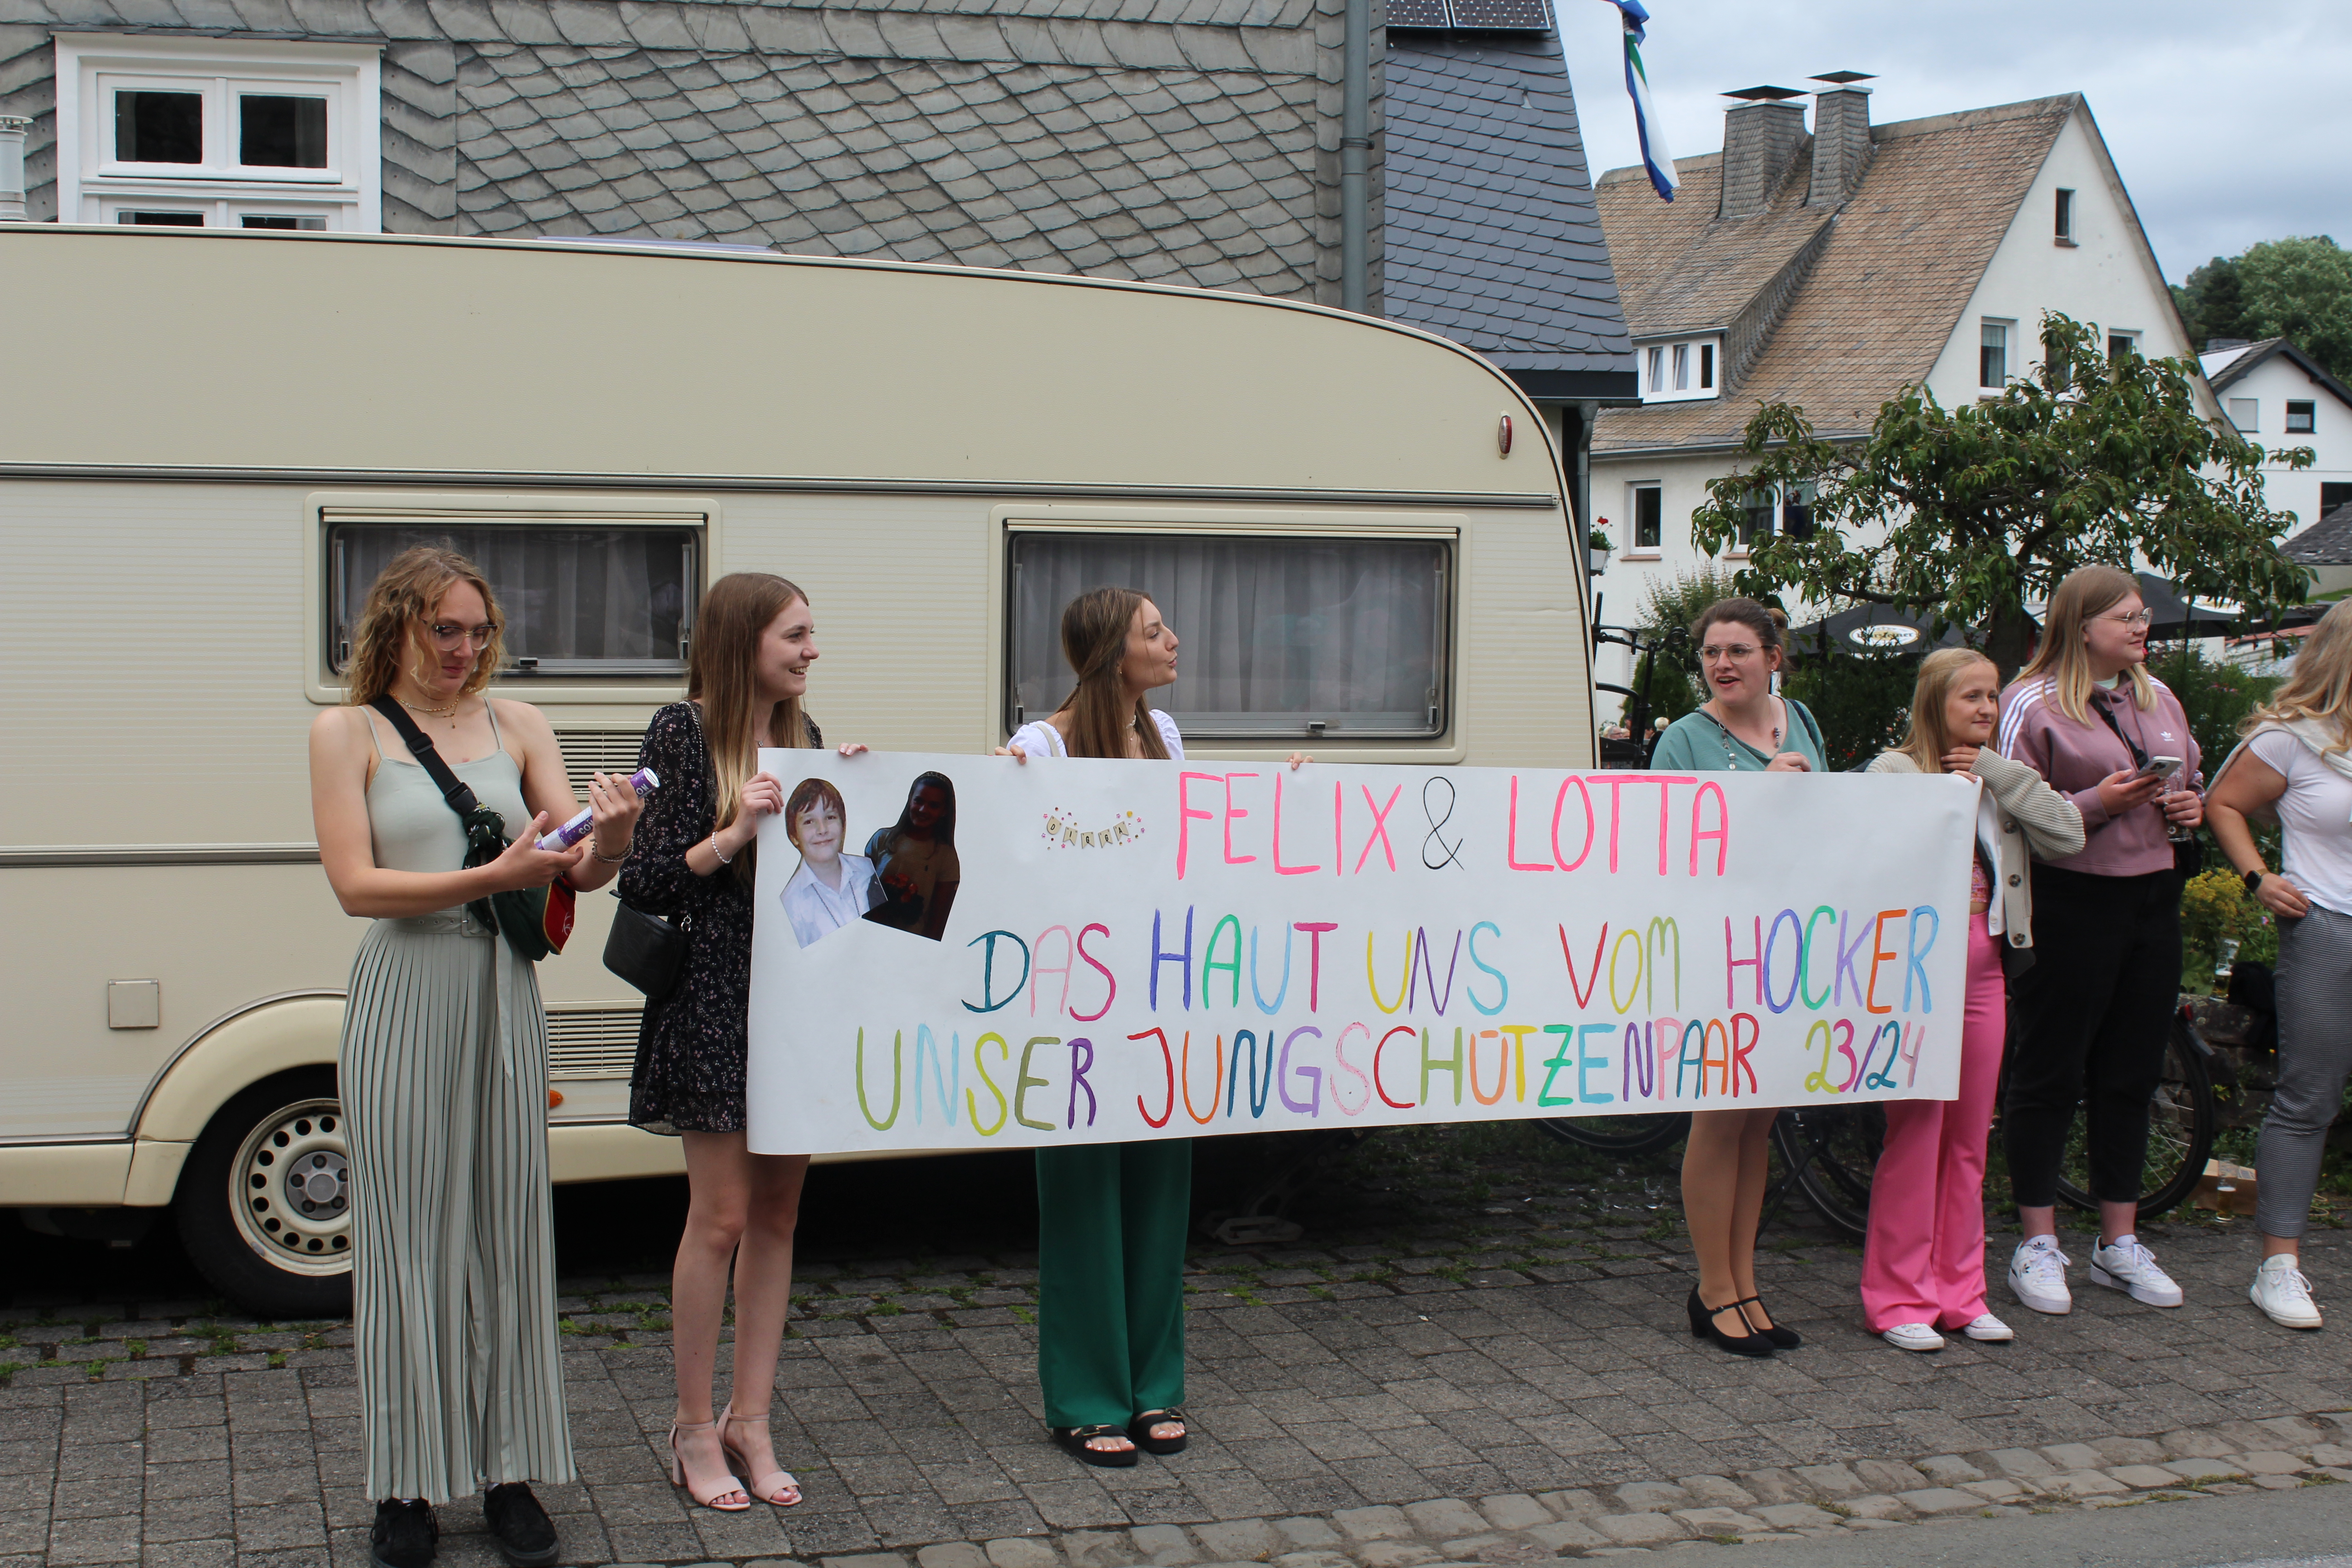 FELIX & LOTTA
DAS HAUT UNS VOM HOCKER
UNSER JUNGSCHÜTZENPAAR 23/24